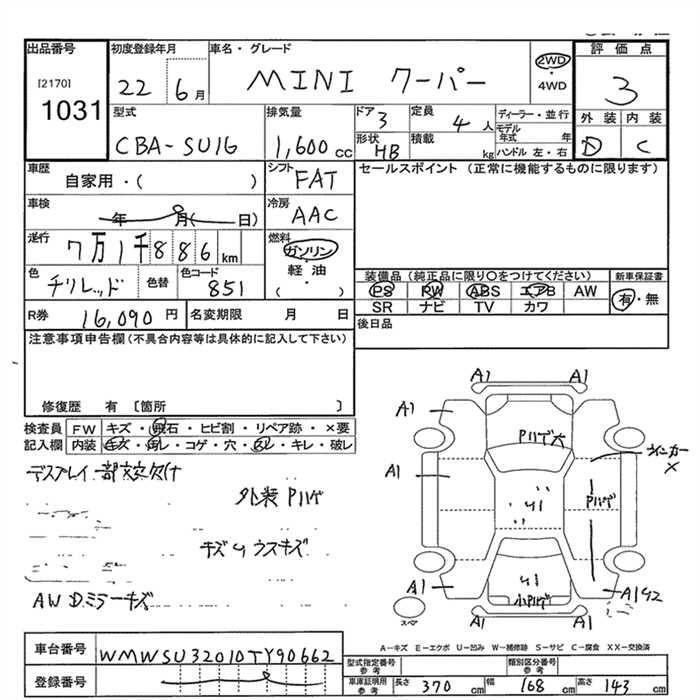 出品番号
[2170]
1031
初度登録年月
22 6月
車名・グレード
MINI クーパー
2WD
・
4WD
評価点
3
外装 内装
D C
型式
CBA-SU16
排気量
1,600 cc
ドア
3
形状
HB
定員
4人
積載
kg
ディーラー・並行
モデル年式 年
ハンドル 左・右
車歴
自家用・( )
車検
年 月( 日)
走行
7万1千886km
色
チリレッド
色替
色コード
851
シフト
FAT
冷房
AAC
燃料
ガソリン
・
軽油
・
( )
セールスポイント (正常に機能するものに限ります)
装備品(純正品に限り○をつけてください)
PS PW ABS エアB AW
SR ナビ TV カワ
新車保証書
有・無
後日品
R券 16,090円 名変期限 月 日
注意事項申告欄(不具合内容等は具体的に記入して下さい)
修復歴 有 〔箇所 〕
検査員記入欄
FW キズ・飛石・ヒビ割・リペア跡・×要
内装 キズ・汚レ・コゲ・穴・スレ・キレ・破レ
外装 Pハゲ
キズ U ウスキズ
AW Dミラーキズ
A1 A1
A1
Pハゲ大
ウィンカー
×
A1
U1
Pハゲ
A1
U1
小Pハゲ
A1U2
A1 A1
スペア
A-キズ E-エクボ U-凹み W-補修跡 S-サビ C-腐食 XX-交換済
車台番号 WMWSU32010TY90662
登録番号
型式指定番号 参考
類別区分番号 参考
車庫証明用 参考
長さ 370 cm 幅 168 cm 高さ 143 cm